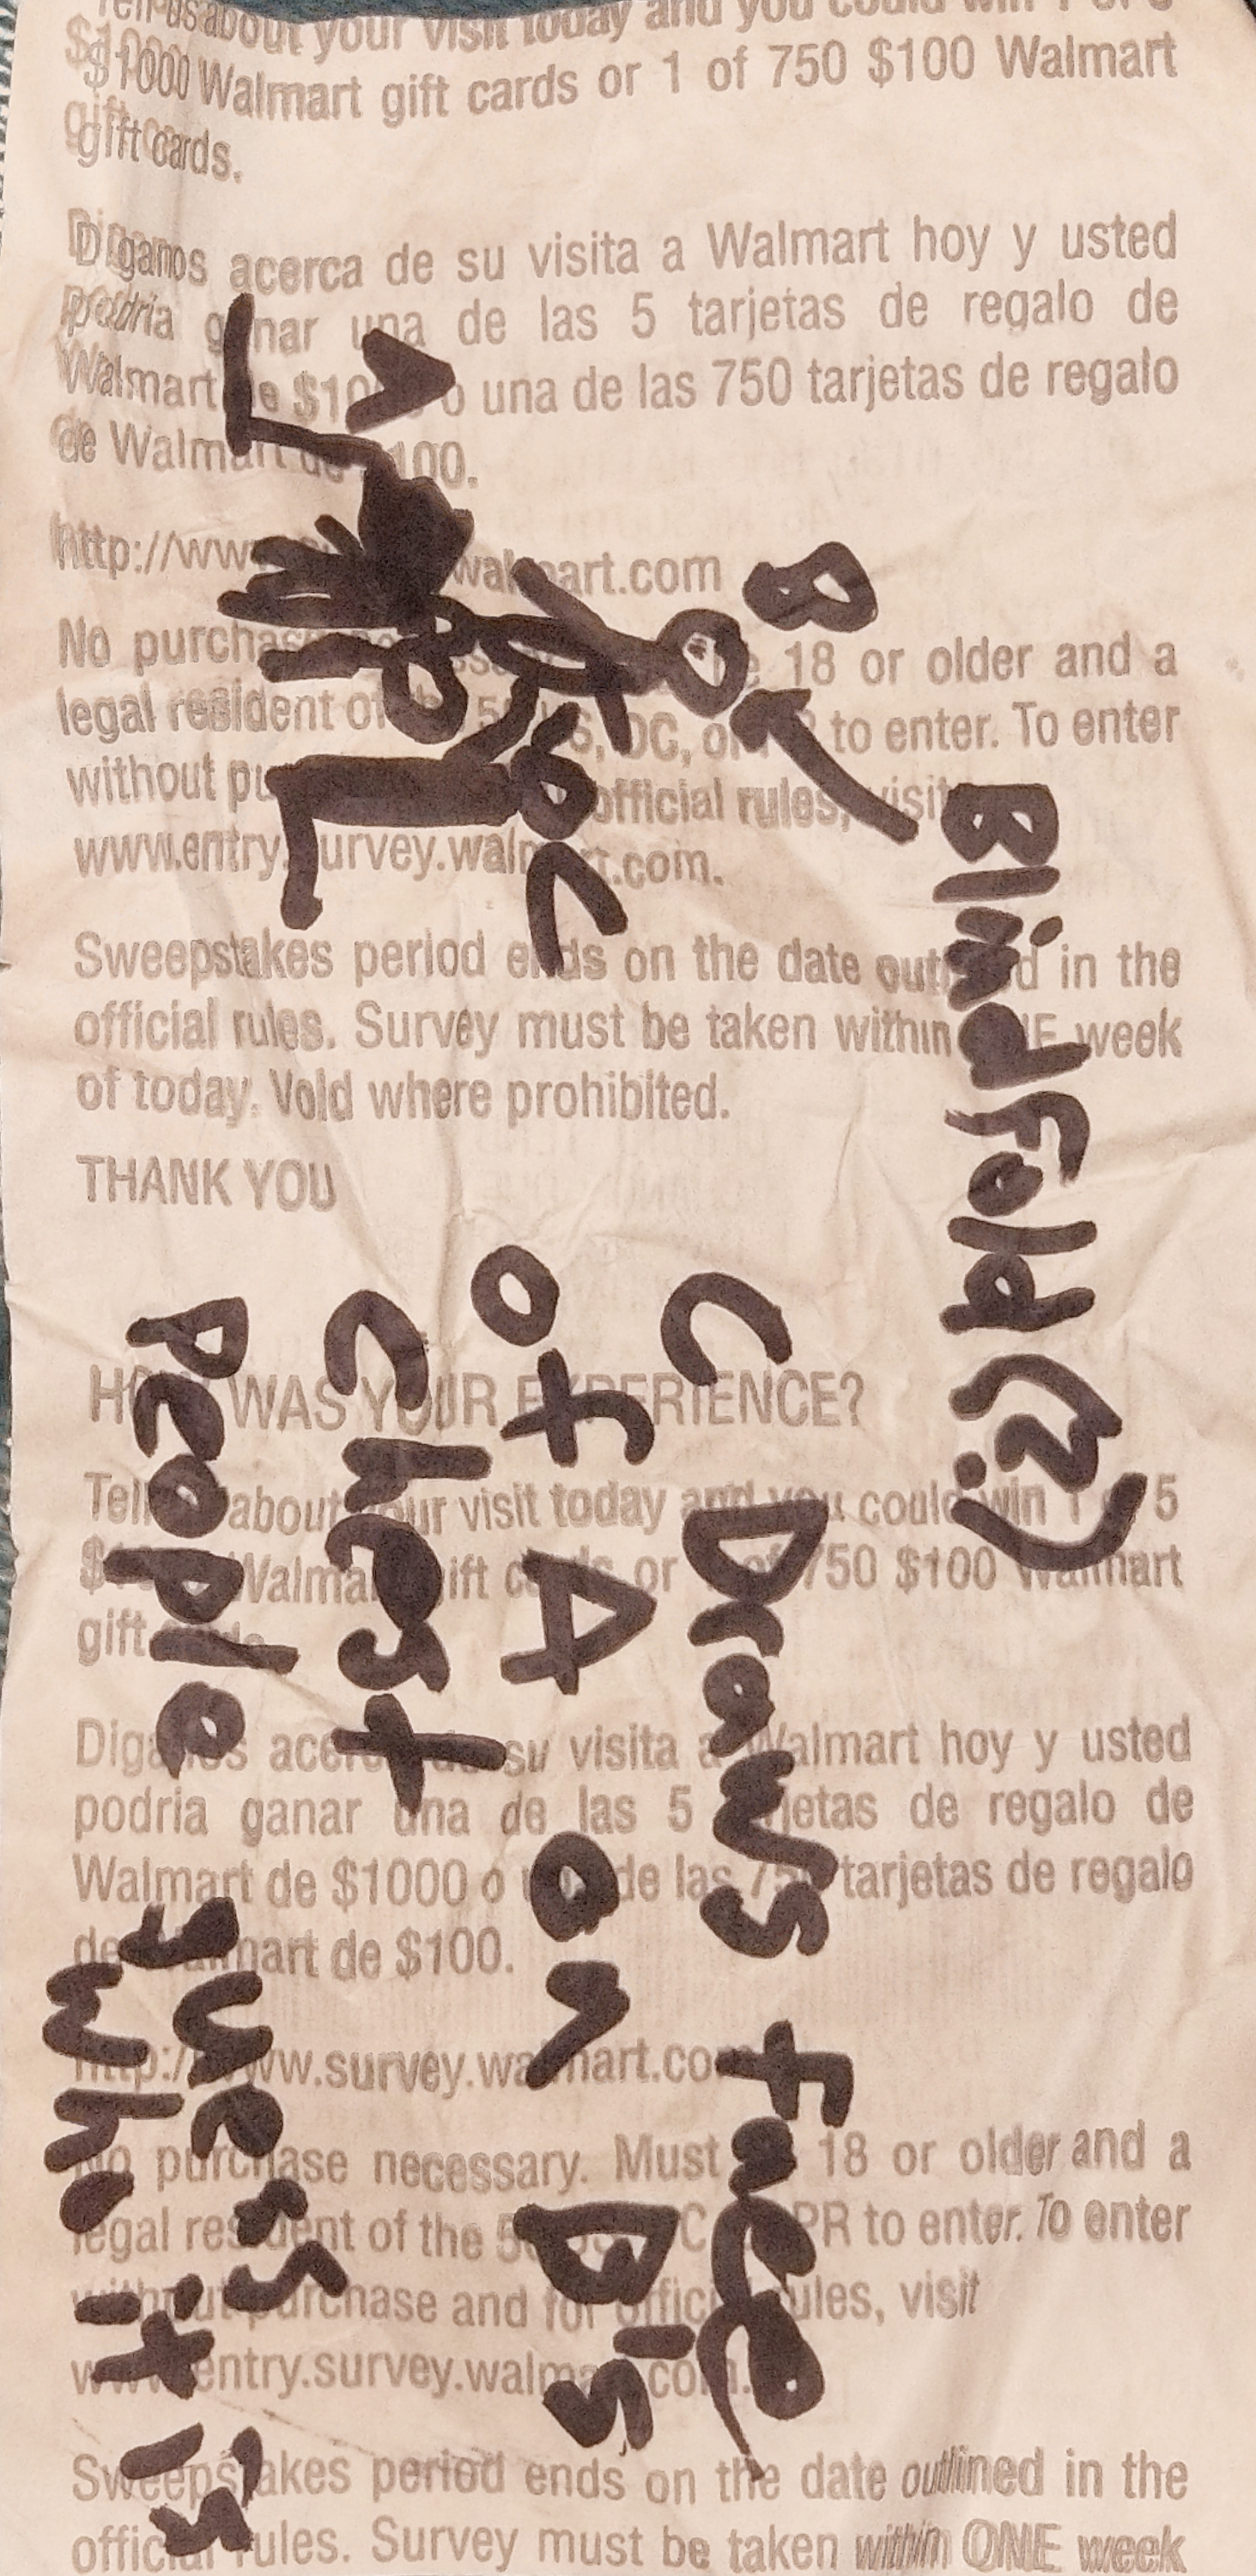 Blindfold(?)
B
C
A
C Draws face
of A on B's
chest
People guess
who it is
$1000 Walmart gift cards or 1 of 750 $100 Walmart
gift cards.
Díganos acerca de su visita a Walmart hoy y usted
podría ganar una de las 5 tarjetas de regalo de
Walmart de $1000 o una de las 750 tarjetas de regalo
de Walmart de $100.
No purchase 18 or older and a
legal resident of
without pu official rules, visit
www.entry.survey.walmart.com.
Sweepstakes period ends on the date outlined in the
official rules. Survey must be taken within ONE week
of today. Void where prohibited.
THANK YOU
HOW WAS YOUR EXPERIENCE?
Tell about your visit today and you could win 1 5
Walmart gift cards or 750 $100 Walmart
gift
Díganos acerca su visita a Walmart hoy y usted
podría ganar una de las 5 tarjetas de regalo de
Walmart de $1000 o de las tarjetas de regalo
de Walmart de $100.
http://www.survey.walmart.com
No purchase necessary. Must 18 or older and a
legal resident of the 50 PR to enter. To enter
without purchase and for official rules, visit
www.entry.survey.walmart.com.
Sweepstakes period ends on the date outlined in the
official rules. Survey must be taken within ONE week